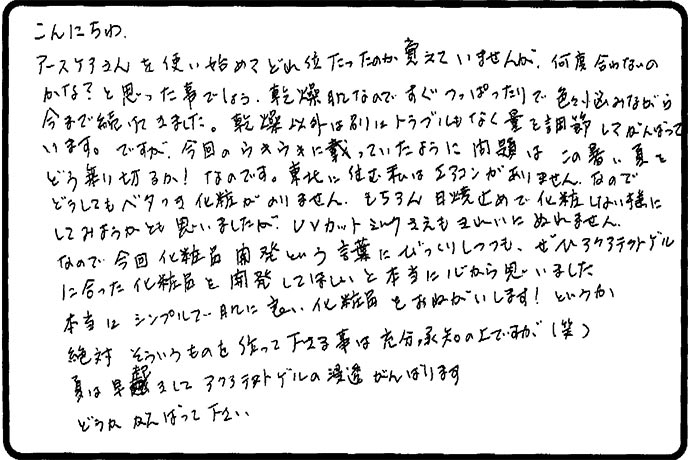 こんにちわ.
アースケアさんを使い始めてどれ位たったのか覚えていませんが、何度合わないの
かな?と思った事でしょう.乾燥肌なのですぐつっぱったりで色々悩みながら
今まで続けてきました。乾燥以外は別にトラブルもなく量を調節してがんばって
います。ですが、今回のうきうきに載っていたように問題はこの暑い夏を
どう乗り切るか!なのです。東北に住む私はエアコンがありません.なので
どうしてもベタつき化粧がのりません.もちろん日焼止めで化粧しない様に
してみようかとも思いましたが、UVカットミルクさえもきれいにぬれません.
なので今回化粧品開発という言葉にびっくりしつつも、ぜひアクアテクトゲル
に合った化粧品を開発してほしいと本当に心から思いました
本当にシンプルで肌に良い化粧品をおねがいします!というか
絶対そういうものを作って下さる事は充分承知の上ですが(笑)
夏は早起きしてアクアテクトゲルの浸透がんばります
どうかがんばって下さい